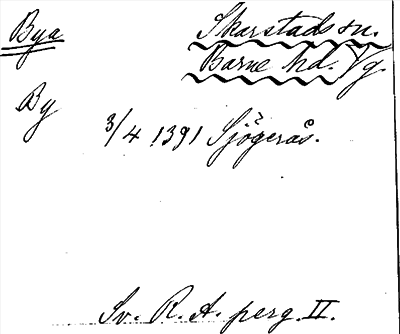 Bya Skarstads sn.
Barne hd. Vg.
By
3/4 1391 Sjögerås.
Sv. R. A. perg. II.